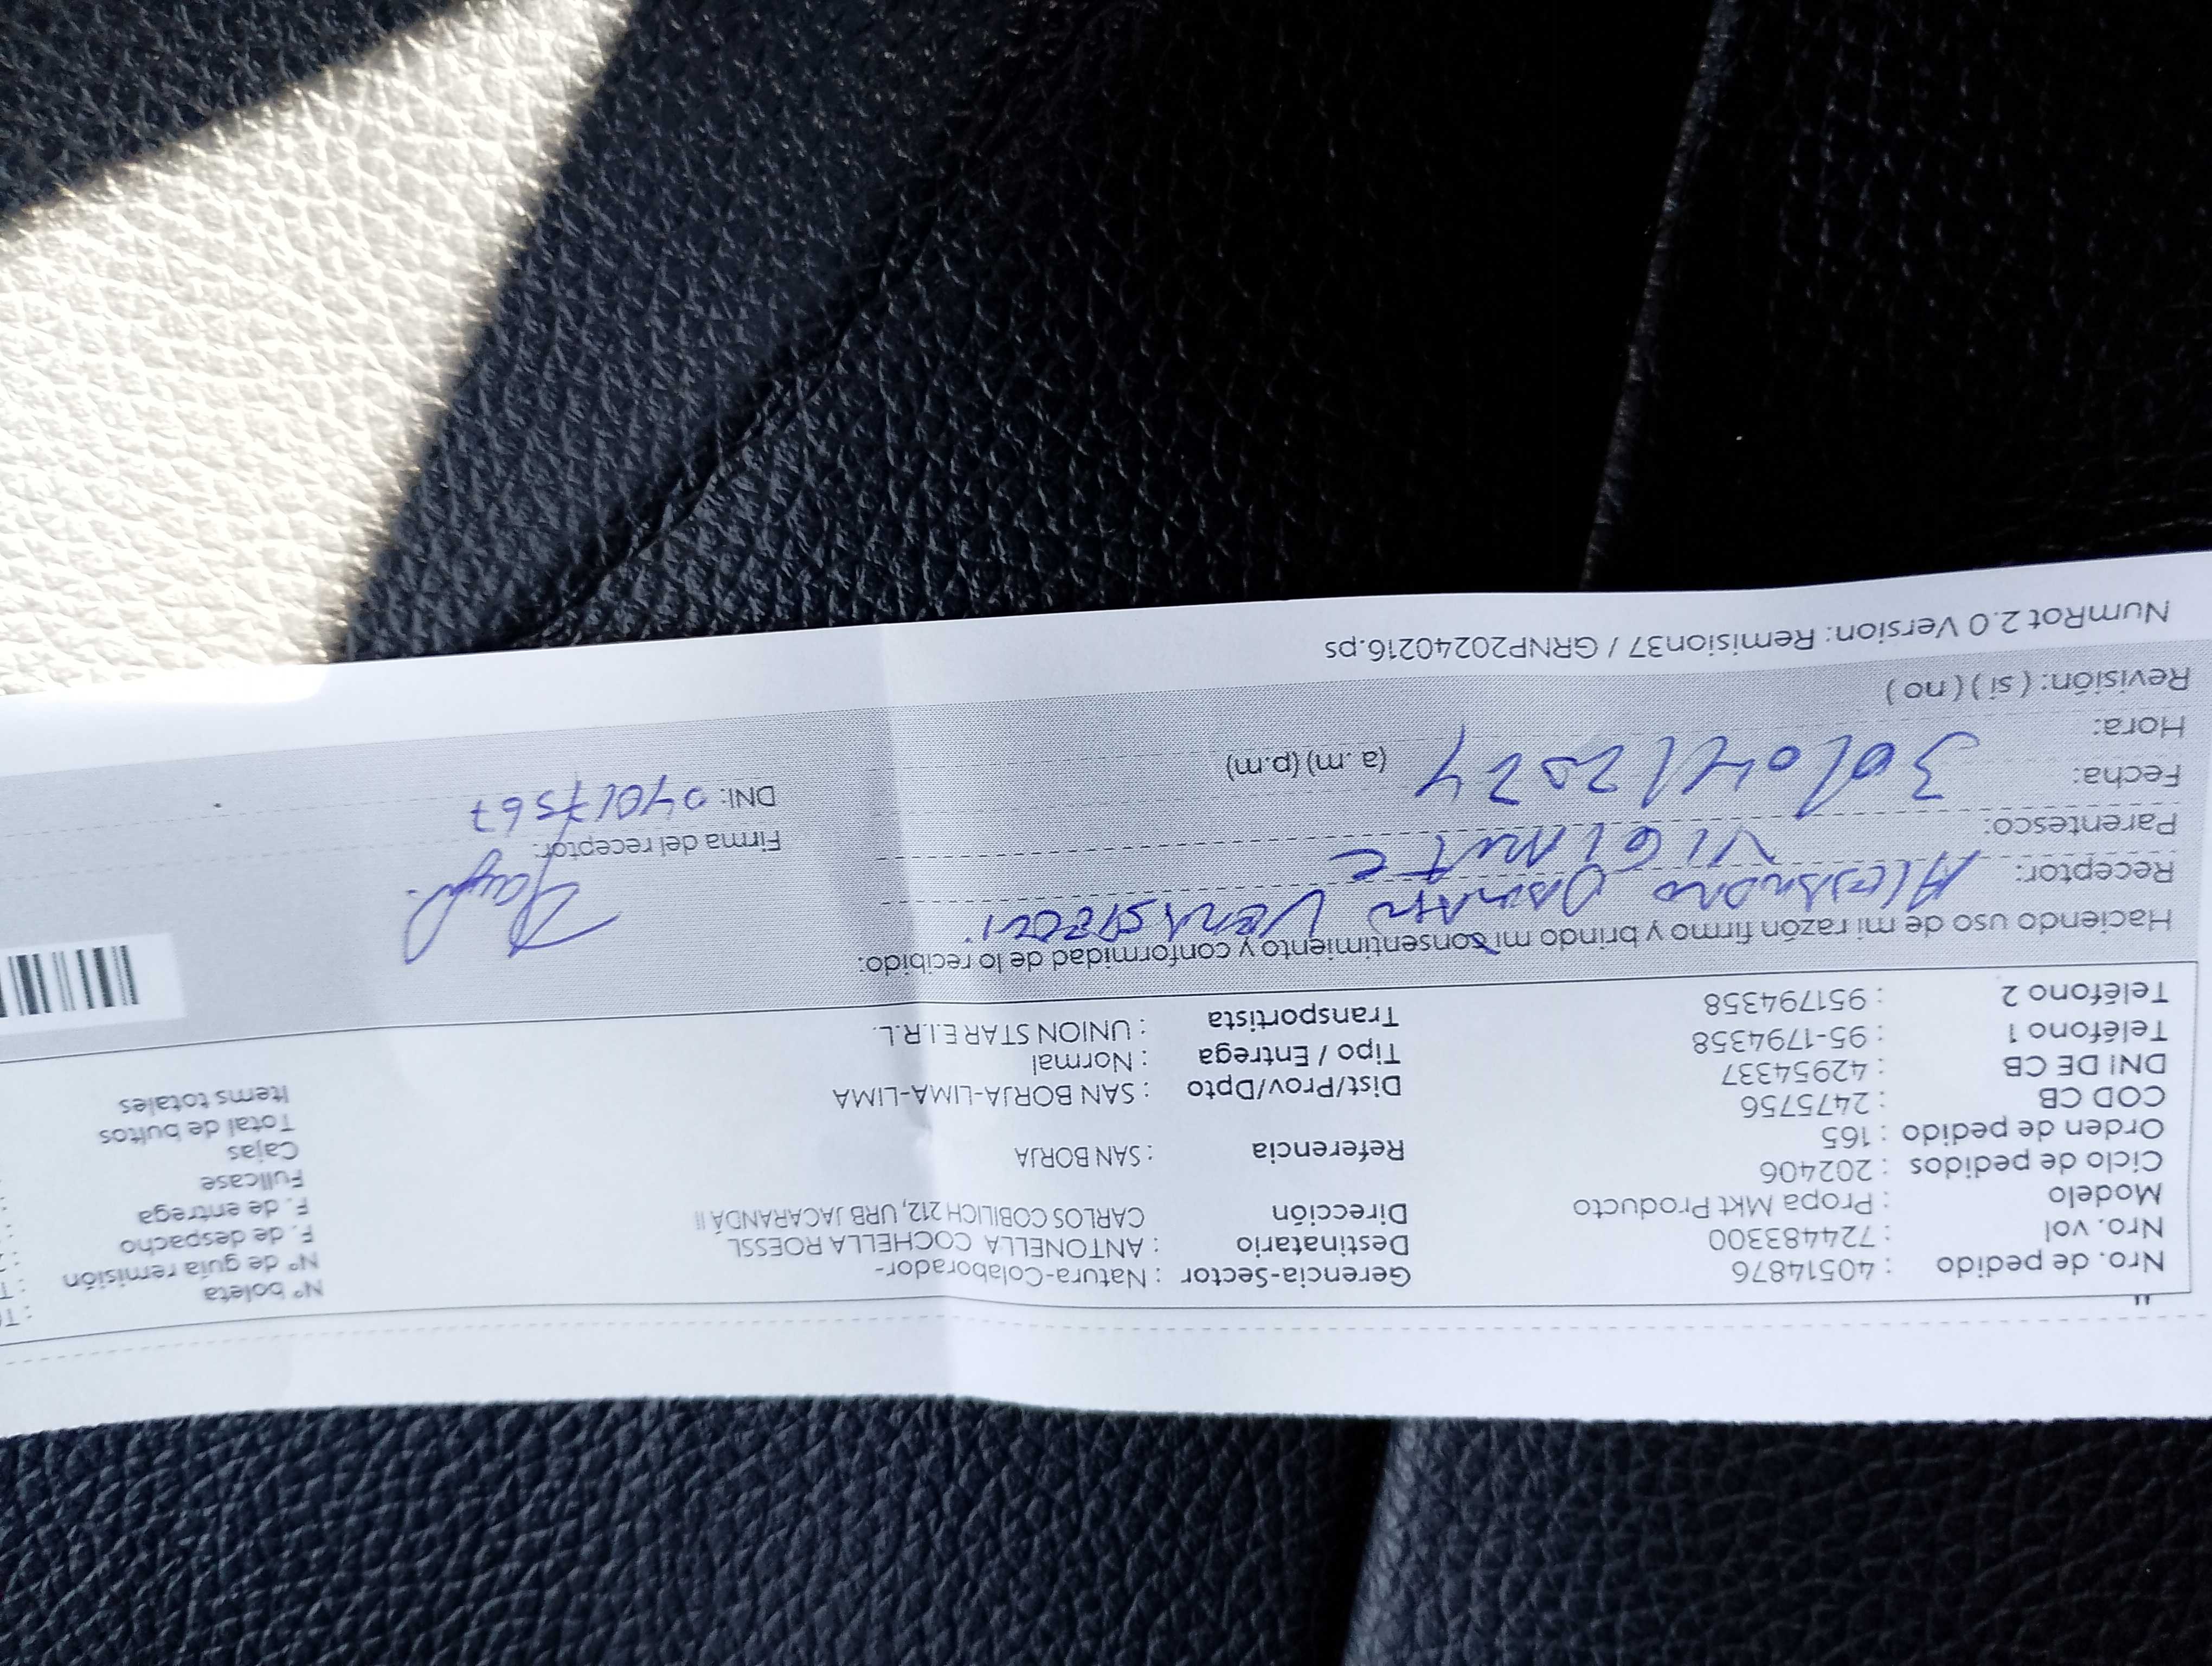 Nro. de pedido : 40514876 Gerencia-Sector : Natura-Colaborador- N° boleta
Nro. vol : 724483300 Destinatario : ANTONELLA COCHELLA ROESSL N° de guía remisión
Modelo : Propa Mkt Producto Dirección CARLOS COBILICH 212, URB JACARANDÁ II F. de despacho
Ciclo de pedidos : 202406 F. de entrega
Orden de pedido : 165 Referencia : SAN BORJA Fullcase
COD CB : 2475756 Cajas
DNI DE CB : 42954337 Dist/Prov/Dpto : SAN BORJA-LIMA-LIMA Total de bultos
Teléfono 1 : 95-1794358 Tipo / Entrega : Normal Items totales
Teléfono 2 : 951794358 Transportista : UNION STAR E.I.R.L.
Haciendo uso de mi razón firmo y brindo mi consentimiento y conformidad de lo recibido:
Receptor: Alessandro
Parentesco: Firma del receptor:
Fecha: 30/04/2024 DNI:
Hora: (a.m) (p.m)
Revisión: ( si ) ( no )
NumRot 2.0 Version: Remision37 / GRNP20240216.ps